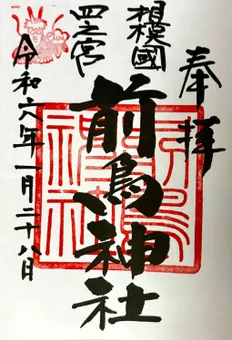 奉拝
相模國
四之宮
前鳥神社
令和六年一月二十八日
前鳥神社